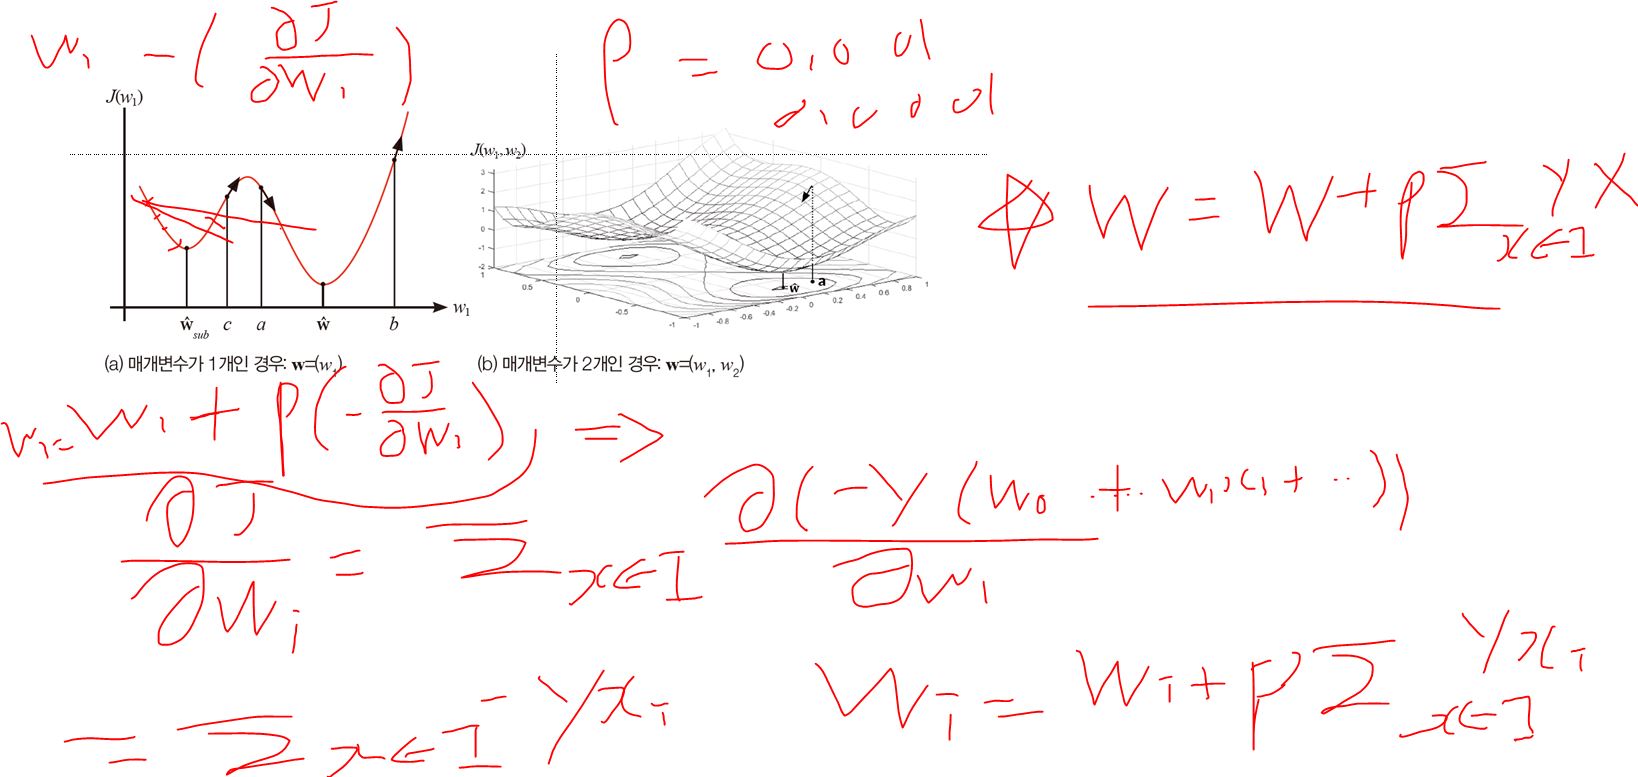 w₁ - ( ∂J / ∂w₁ )
ρ = 0.001
0.0001
J(w₁)
ŵsub c a ŵ b w₁
(a) 매개변수가 1개인 경우: w=(w₁)
J(w₁, w₂)
3
2
1
0
-1
-2
1 0.5 0 -0.5 -1
-1 -0.8 -0.6 -0.4 -0.2 0 0.2 0.4 0.6 0.8 1
ŵ a
(b) 매개변수가 2개인 경우: w=(w₁, w₂)
W = W + ρ Σ x∈I y x
w₁ = w₁ + ρ( - ∂J / ∂w₁ ) ⇒
∂J / ∂wᵢ = Σ x∈I ∂(-y (w₀ + ·· w₁x₁ + ··)) / ∂w₁
= Σ x∈I - y xᵢ
wᵢ = wᵢ + ρ Σ x∈I y xᵢ